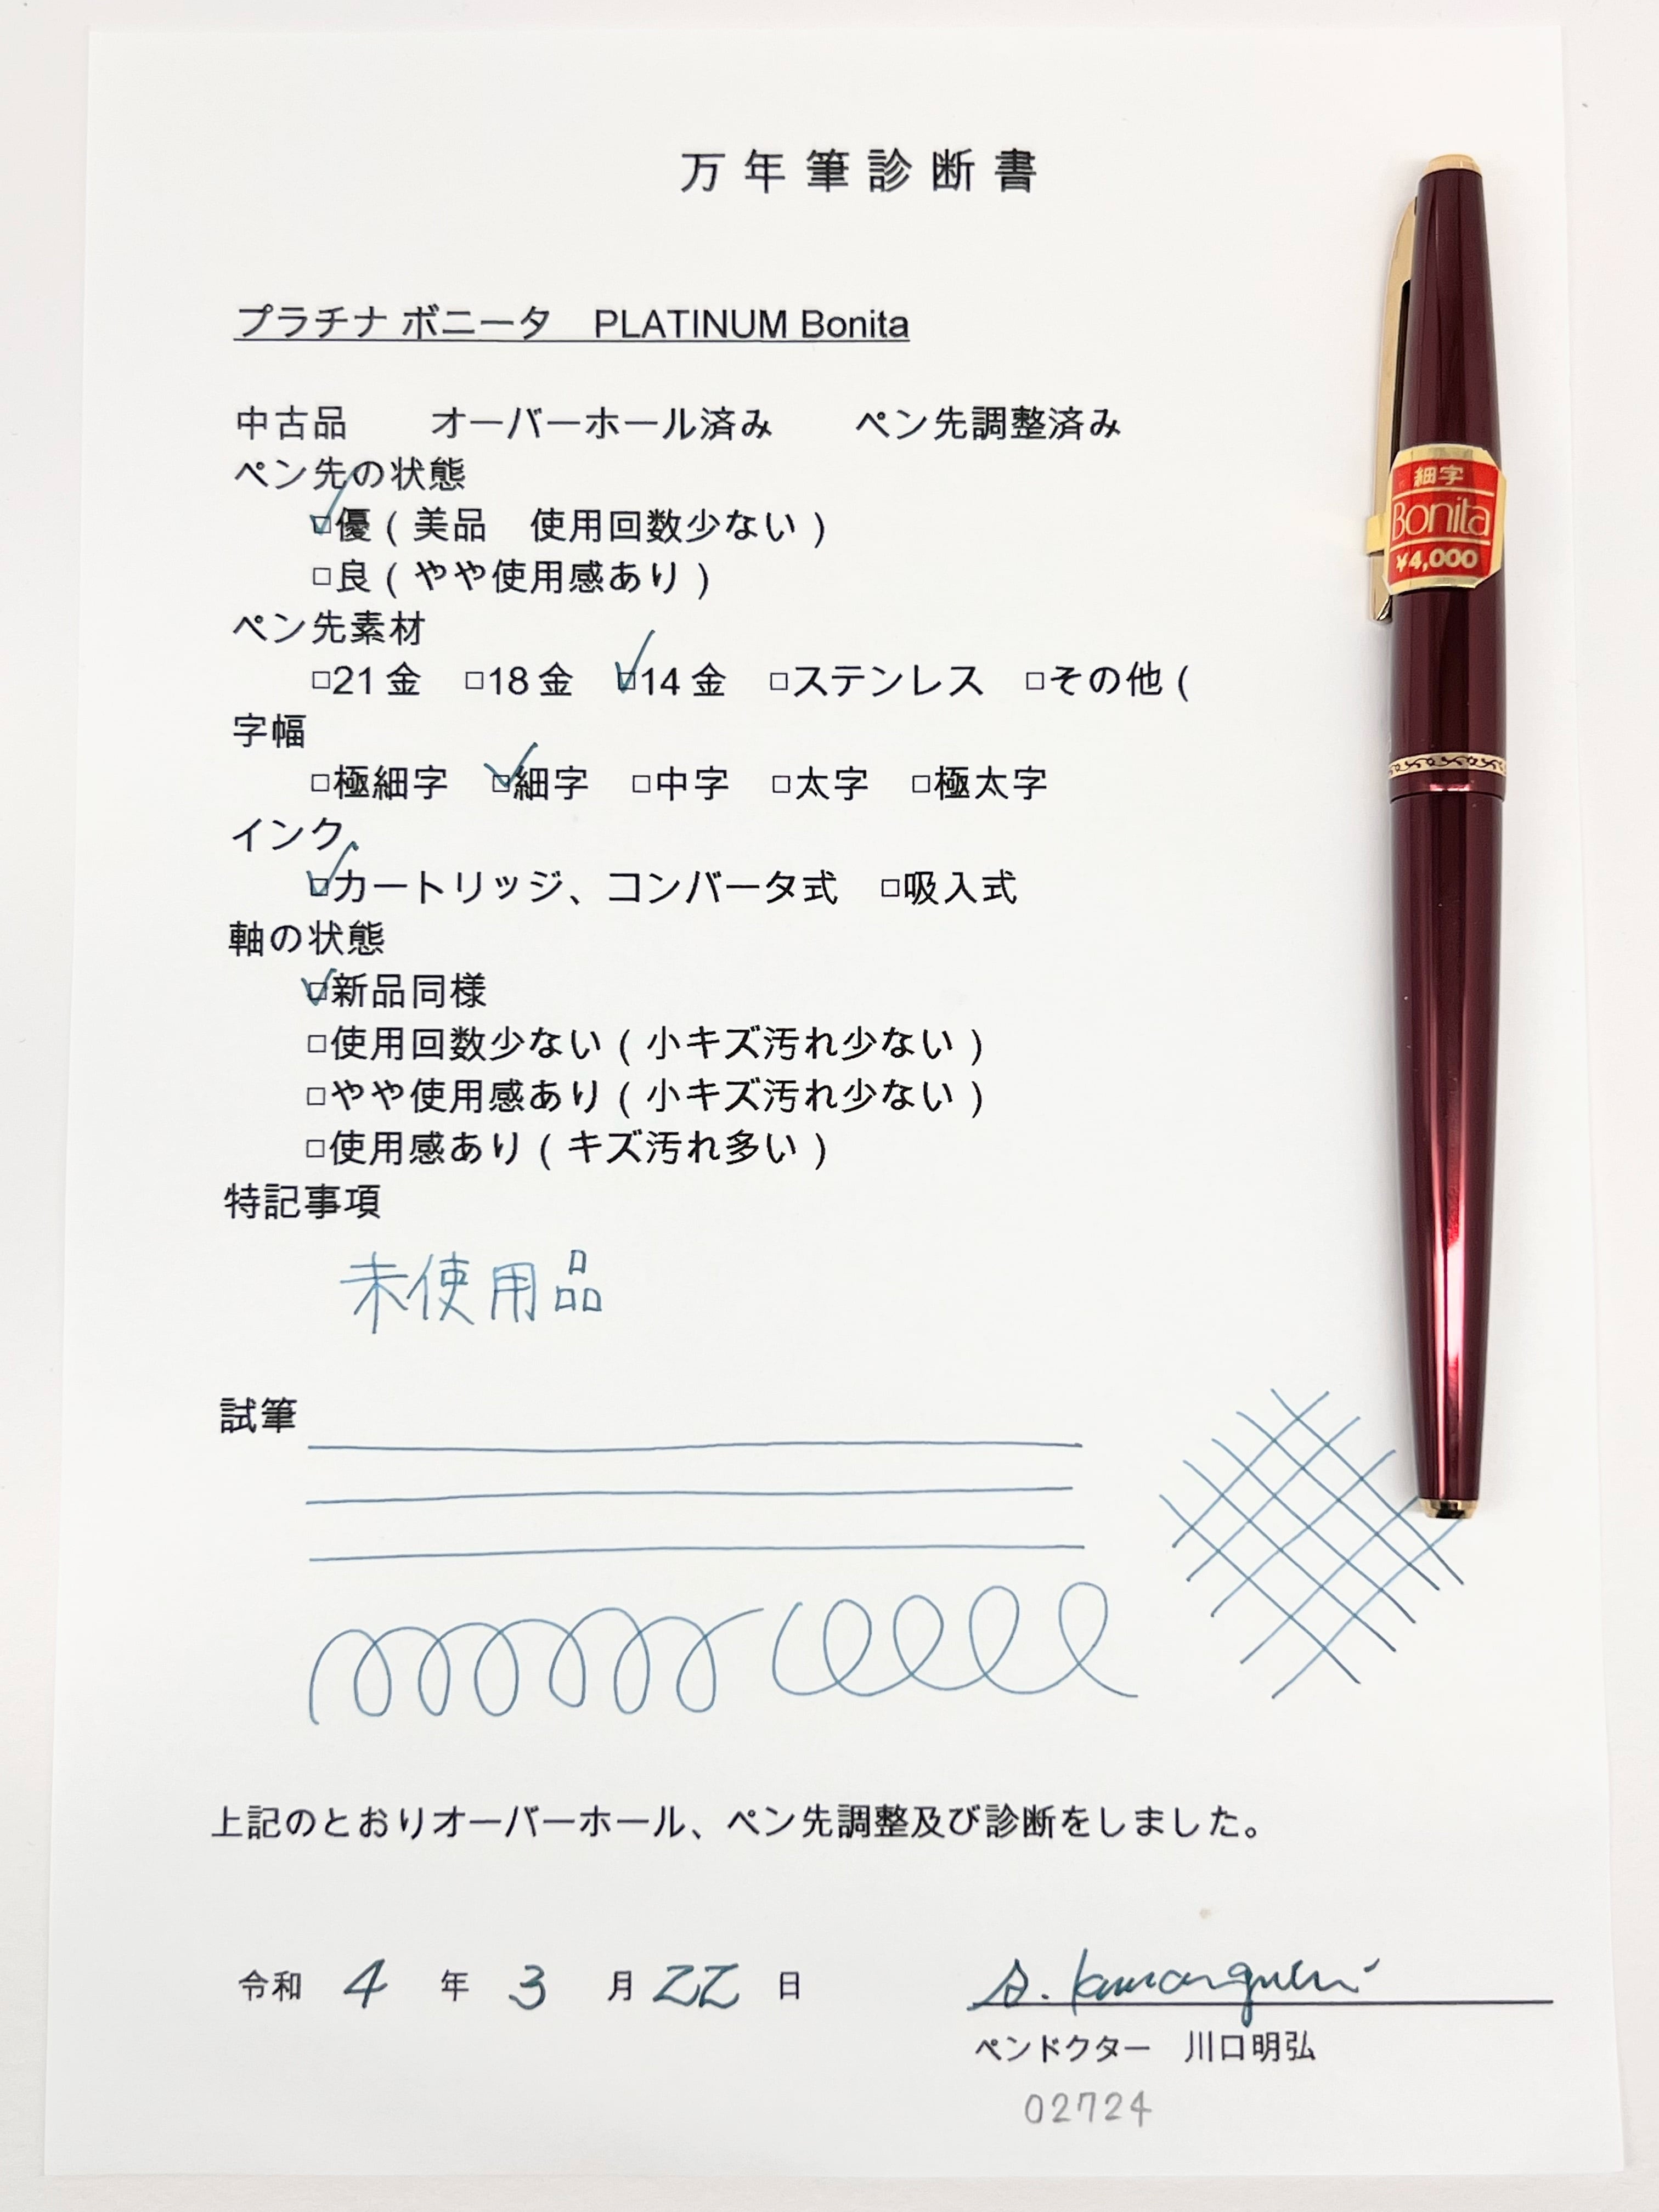 万年筆診断書
プラチナ ボニータ　PLATINUM Bonita
中古品　オーバーホール済み　ペン先調整済み
ペン先の状態
☑優（美品　使用回数少ない）
□良（やや使用感あり）
ペン先素材
□21金　□18金　☑14金　□ステンレス　□その他（
字幅
□極細字　☑細字　□中字　□太字　□極太字
インク
☑カートリッジ、コンバータ式　□吸入式
軸の状態
☑新品同様
□使用回数少ない（小キズ汚れ少ない）
□やや使用感あり（小キズ汚れ少ない）
□使用感あり（キズ汚れ多い）
特記事項
未使用品
試筆
上記のとおりオーバーホール、ペン先調整及び診断をしました。
令和 4 年 3 月 22 日
A. Kawaguchi
ペンドクター　川口明弘
02724
細字
Bonita
¥4,000